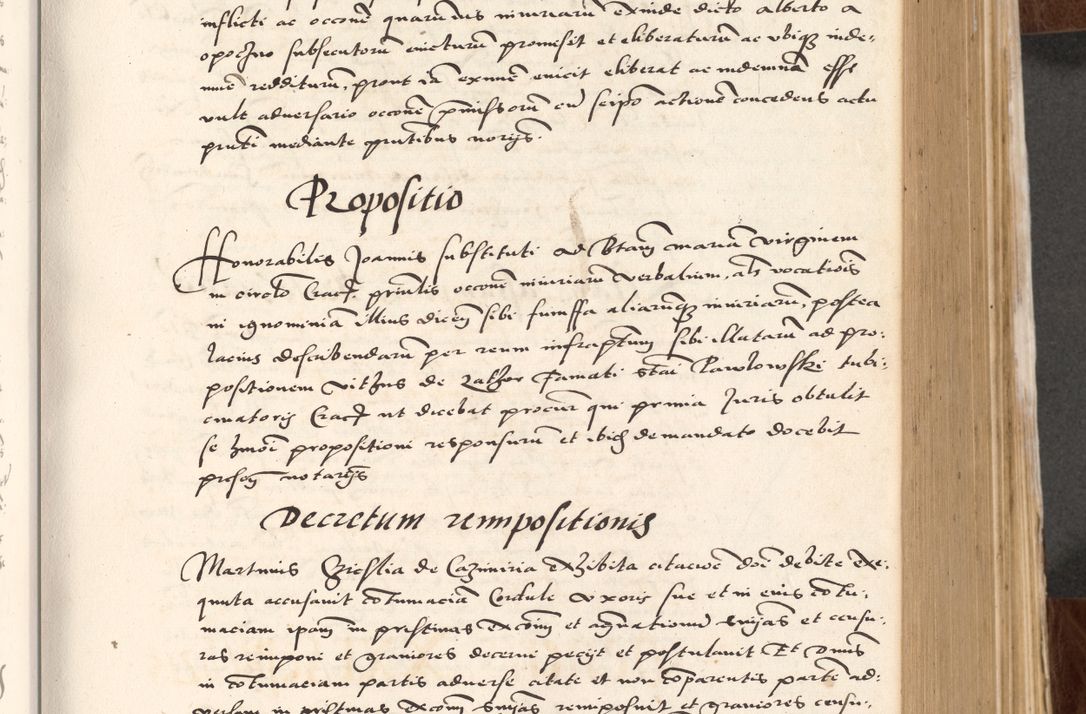 inflicti ac occone quarumvis iniuriarum exinde dicto alberto a
opoczno subsecutorum evicturum promisit et eliberaturum ac ubiq3 inde-
mnem redditurum, prout ia exnunc evicit eliberat ac indemnem esse
vult adversario occone pmissorum cum seipso actione concedens actu
prnti mediante prntibus notorys.
Propositio
Honorabilis Joannis substituti ad Btam mariam virginem
in circlo Crac. prnlis occone iniuriarum verbalium, als vocationis
in ignominiam illius dicen sibi aliarumq3 iniuriarum, postea
lacius describendarum per reum infrascptum sibi illatarum ad pro-
positionem de Lathor Famati Stai Pawlowski tubi-
cinatoris Crac. ut dicebat procur qui prmia Juris obtulit
se hmoi propositioni responsurum et ibid de mandato docebit
presen notarys
Decretum reimpositionis
Martinus de Cazimiria exhibita citacione doi debite exe-
quuta accusavit cotumaciam Cordule uxoris sue et in eius cotu-
maciam ipam in pristinas excom et agravationum snias et censu-
ras reimponi et graviores decerni peciyt et postulavit Et Dnus
in cotumaciam partis adverse citate et non coparentis parte ad-
versam in pristinas excom snias reimposuit et graviores censu-